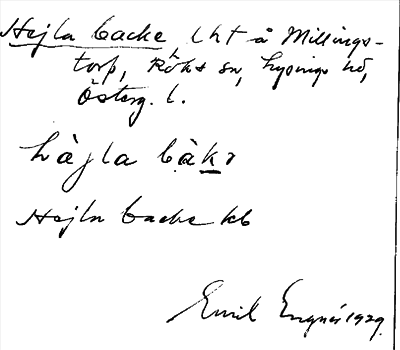 Hejla backe, lht å Millings-
torp, Röks sn, Lysings hd,
Österg. l.
hàjla bàkə
Hejla backe kb
Emil Engnér 1929.